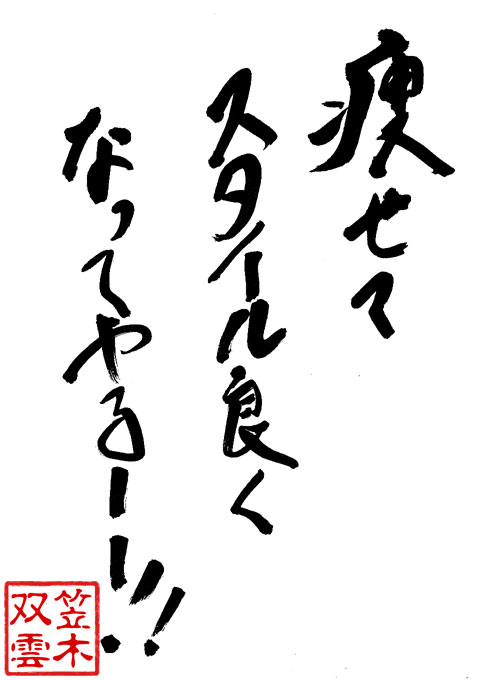 痩せて
スタイル良く
なってやるーッ!!
笠木
双雲